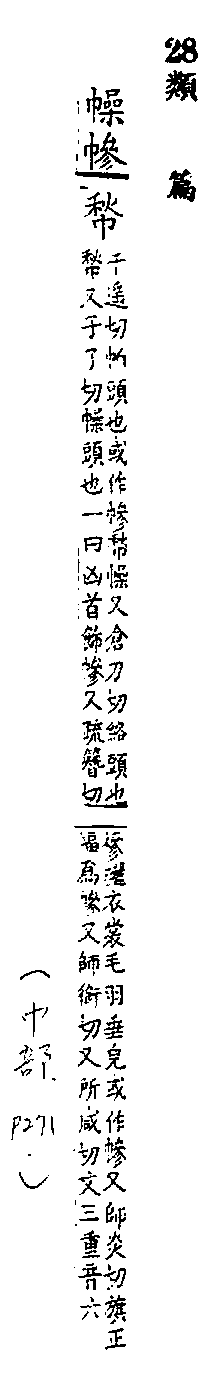 28類 篇
幧幓㡑
千遥切㡑頭也或作幓㡑幧又倉刀切絡頭也
㡑又子了切幧頭也一曰凶首飾幓又疏簪切
幓纚衣裳毛羽垂皃或作幓又師炎切旗正
幅爲幓又師銜切又所咸切文三重音六
(巾部 P271.)